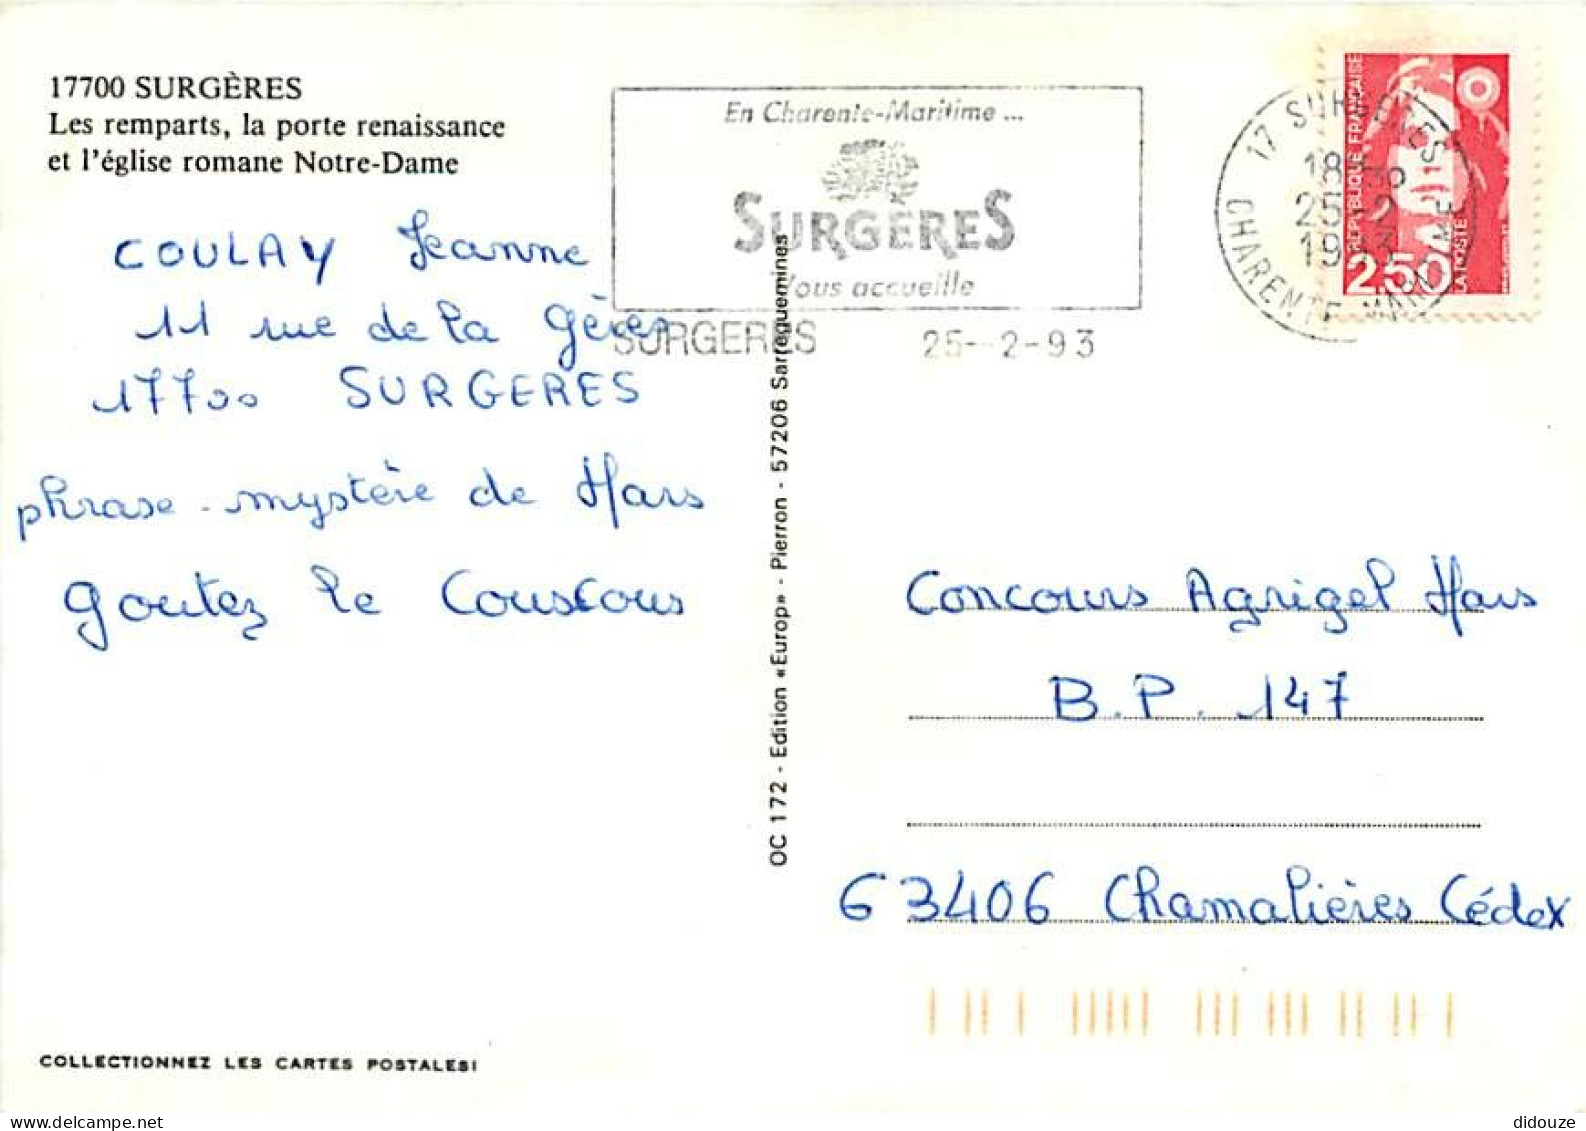 17700 SURGÈRES
Les remparts, la porte renaissance
et l'église romane Notre-Dame
COULAY Jeanne
11 rue de la Gères
17700 SURGERES
phrase-mystère de Mars
Goutez le Couscous
COLLECTIONNEZ LES CARTES POSTALES!
OC 172 - Edition «Europ» - Pierron - 57206 Sarreguemines
En Charente-Maritime ...
SURGERES
Vous accueille
SURGERES 25-2-93
17 SURGERES
18H
25-2
1993
CHARENTE MARITIME
RÉPUBLIQUE FRANÇAISE
2,50
LA POSTE
Concours Agrigel Mars
B.P. 147
63406 Chamalières Cédex
didouze